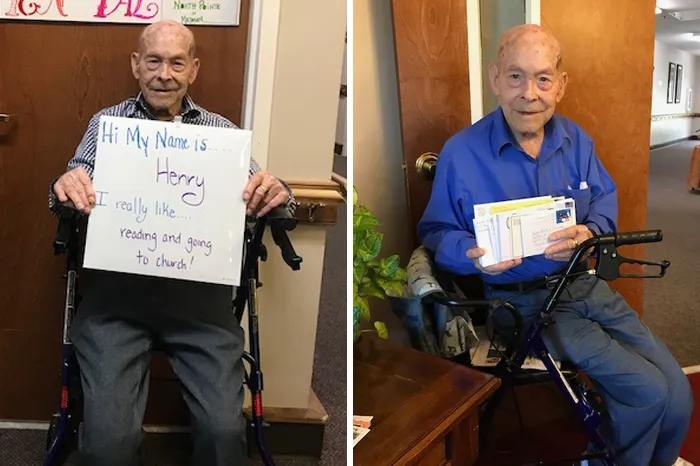 NORTH POINTE
Hi My Name is.....
Henry
I really like....
reading and going
to church!